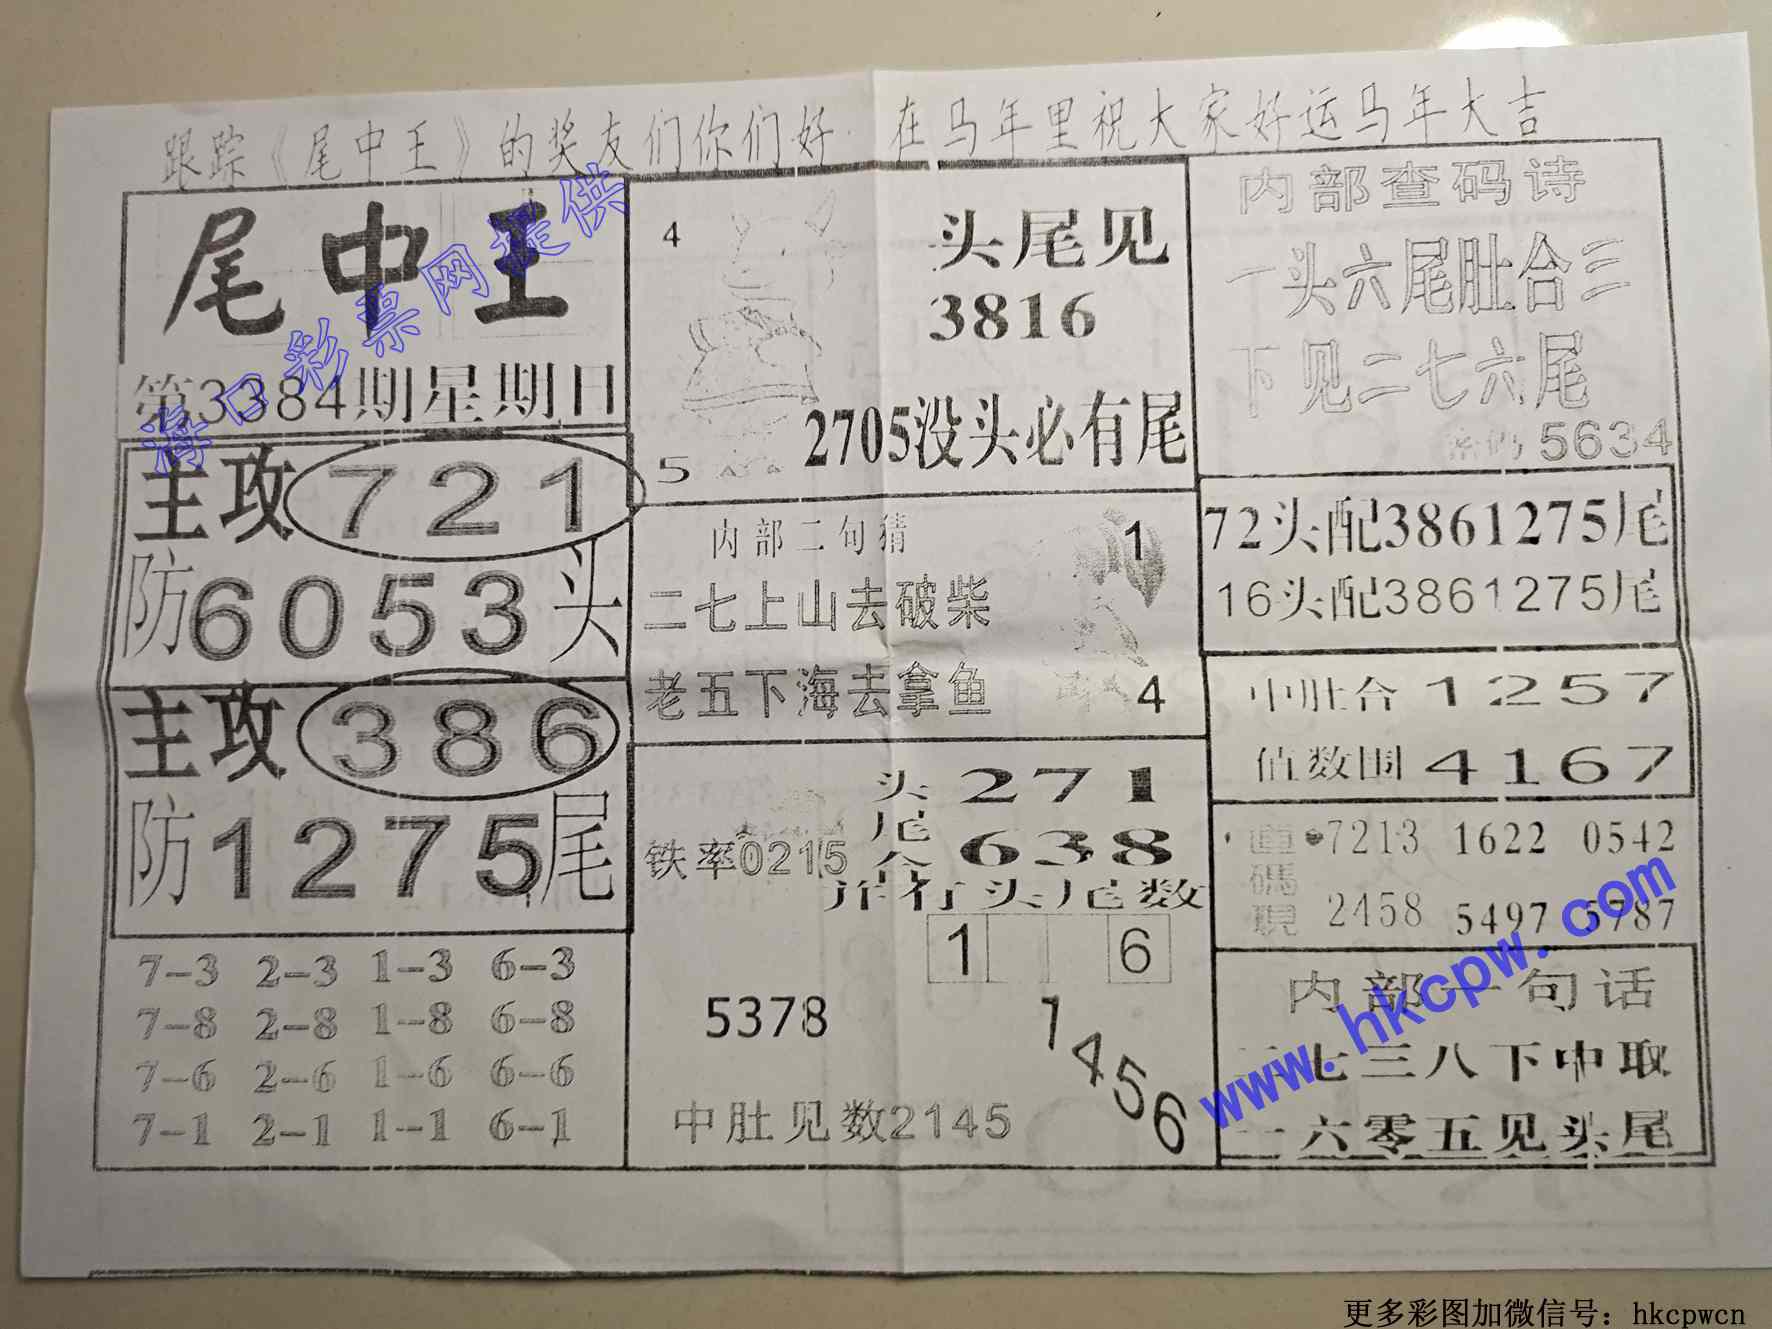 跟踪《尾中王》的奖友们你们好 在马年里祝大家好运马年大吉
尾中王
第3384期星期日
主攻 721
防 6053 头
主攻 386
防 1275 尾
7-3 2-3 1-3 6-3
7-8 2-8 1-8 6-8
7-6 2-6 1-6 6-6
7-1 2-1 1-1 6-1
4
头尾见
3816
2705没头必有尾
5
内部二句猜
1
二七上山去破柴
老五下海去拿鱼
4
头 271
尾
合 638
铁率0215
并行头尾数
1 6
5378
1456
中肚见数2145
内部查码诗
一头六尾肚合三
下见二七六尾
密码 5634
72头配3861275尾
16头配3861275尾
中肚合 1257
值数围 4167
7213 1622 0542
2458 5497 5787
内部一句话
七三八下中取
一六零五见头尾
海口彩票网提供
www.hkcpw.com
更多彩图加微信号：hkcpwcn